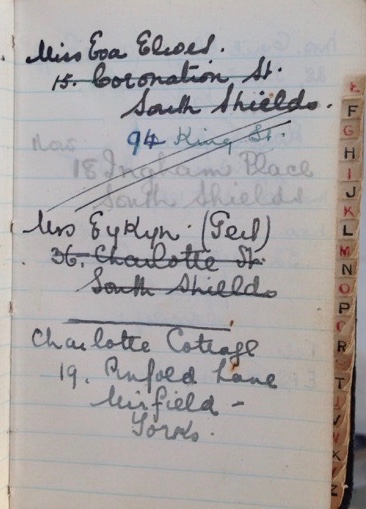 Miss Eva Elwes.
15. Coronation St.
South Shields.
94 King St.
Now
18 Ingham Place
South Shields
Mrs Eykyn. (Ted)
36. Charlotte St.
South Shields
Charlotte Cottage
19. Pinfold Lane
Mirfield -
Yorks.
F
G
H
I
J
K
L
M
N
O
P
R
T
V
W
X
Z